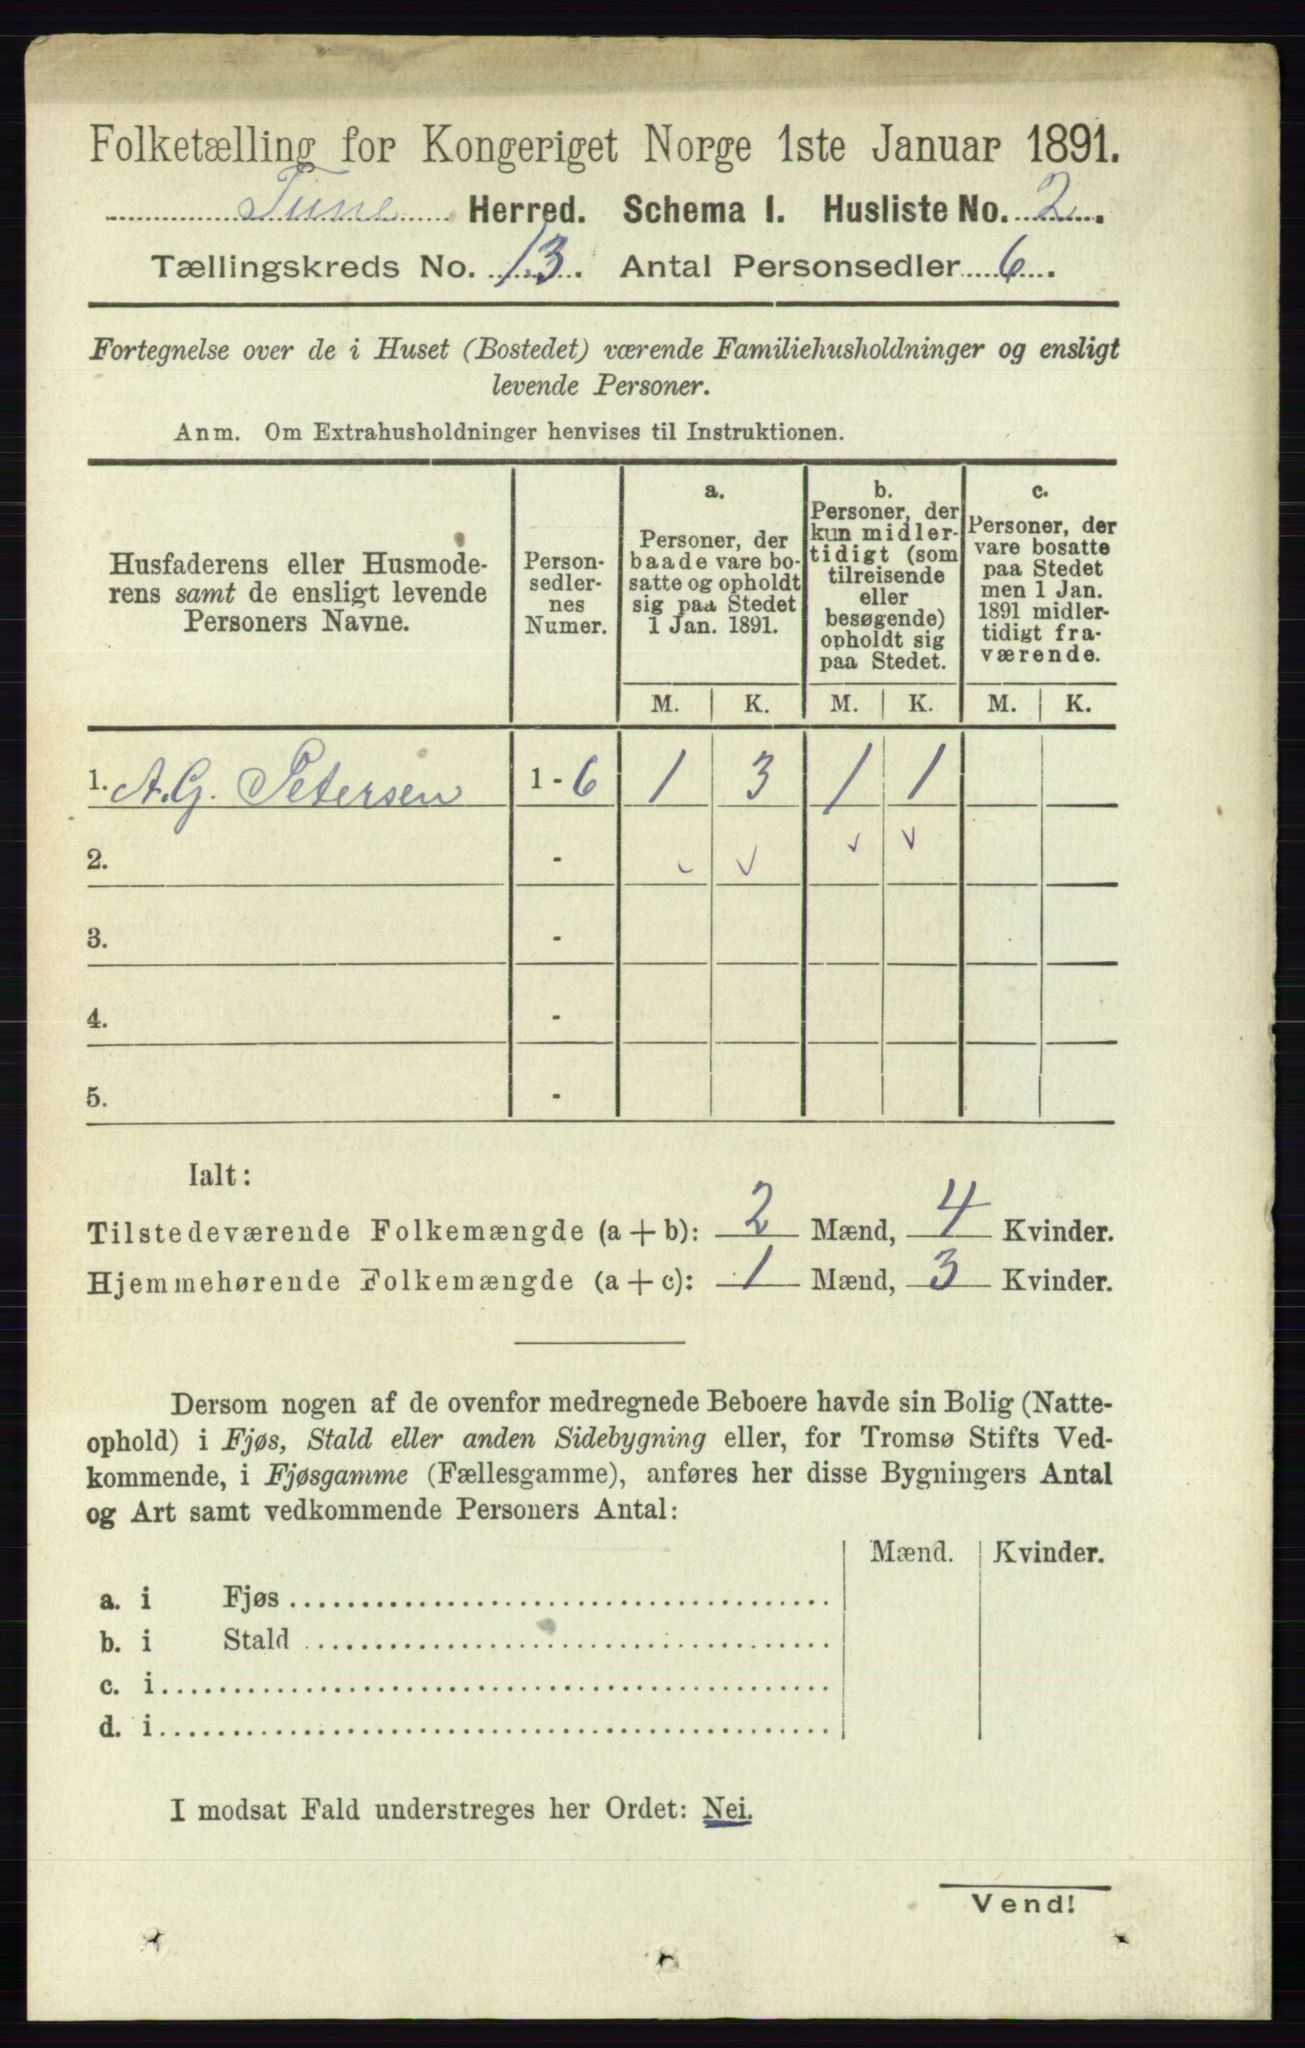 Folketælling for Kongeriget Norge 1ste Januar 1891.
Tune Herred. Schema I. Husliste No. 2.
Tællingskreds No. 13. Antal Personsedler 6.
Fortegnelse over de i Huset (Bostedet) værende Familiehusholdninger og ensligt
levende Personer.
Anm. Om Extrahusholdninger henvises til Instruktionen.
Husfaderens eller Husmode-
rens samt de ensligt levende
Personers Navne.
Person-
sedler-
nes
Numer.
a.
Personer, der
baade vare bo-
satte og opholdt
sig paa Stedet
1 Jan. 1891.
b.
Personer, der
kun midler-
tidigt (som
tilreisende
eller
besøgende)
opholdt sig
paa Stedet.
c.
Personer, der
vare bosatte
paa Stedet
men 1 Jan.
1891 midler-
tidigt fra-
værende.
M. K. M. K. M. K.
1. A.G. Petersen 1 - 6 1 3 1 1
2. -
3. -
4. -
5. -
Ialt:
Tilstedeværende Folkemængde (a + b): 2 Mænd, 4 Kvinder.
Hjemmehørende Folkemængde (a + c): 1 Mænd, 3 Kvinder.
Dersom nogen af de ovenfor medregnede Beboere havde sin Bolig (Natte-
ophold) i Fjøs, Stald eller anden Sidebygning eller, for Tromsø Stifts Ved-
kommende, i Fjøsgamme (Fællesgamme), anføres her disse Bygningers Antal
og Art samt vedkommende Personers Antal:
Mænd. Kvinder.
a. i Fjøs
b. i Stald
c. i
d. i
I modsat Fald understreges her Ordet: Nei.
Vend!